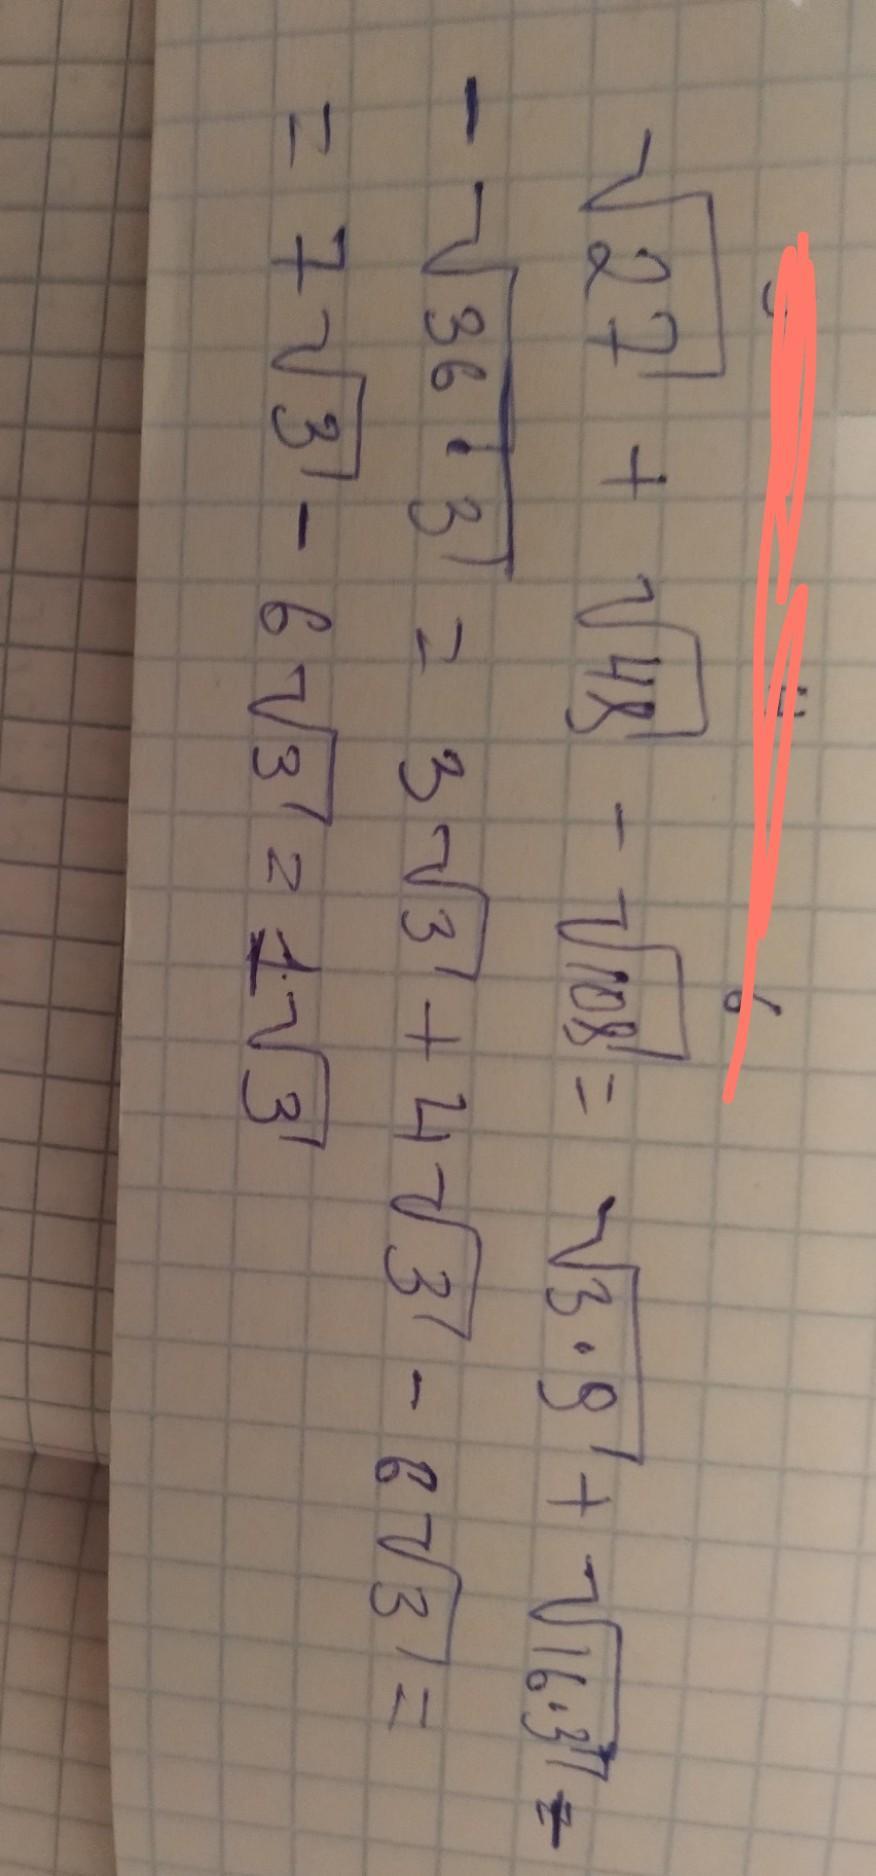 √27 + √48 - √108 = √3·9 + √16·3 -
- √36·3 = 3√3 + 4√3 - 6√3 =
= 7√3 - 6√3 = 1√3